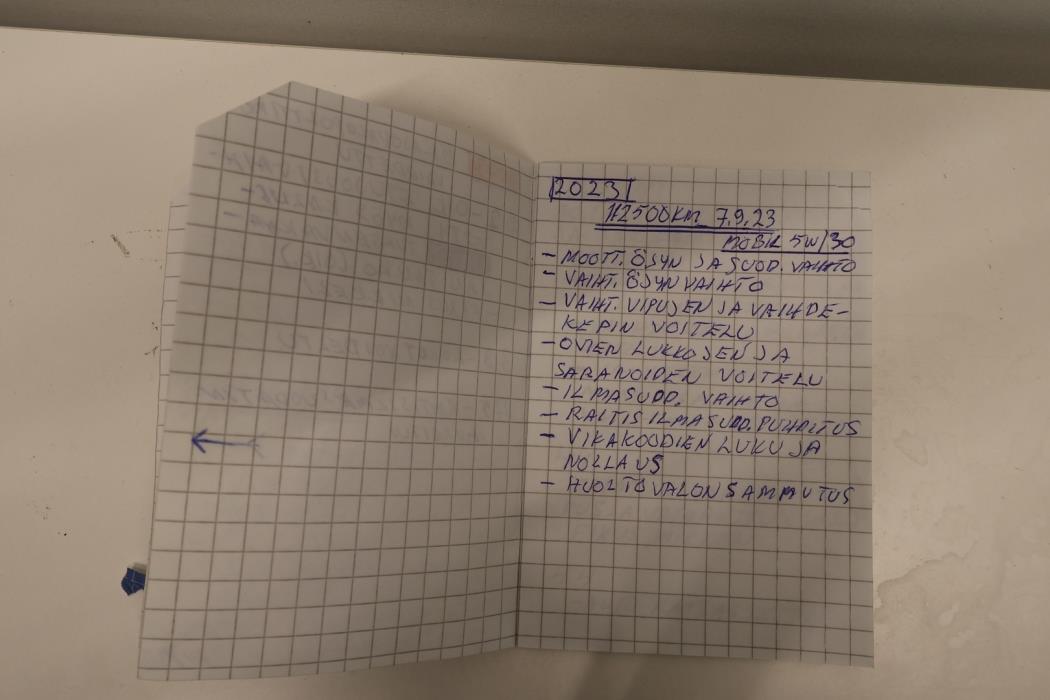 2023
112500KM 7.9.23
MOBIL 5W/30
- MOOTT. ÖJYN JA SUOD. VAIHTO
- VAIHT. ÖJYN VAIHTO
- VAIHT. VIPUJEN JA VAIHDE-
KEPIN VOITELU
- OVIEN LUKKOJEN JA
SARANOIDEN VOITELU
- ILMASUOD. VAIHTO
- RAITIS ILMASUOD. PUHALTUS
- VIKAKOODIEN LUKU JA
NOLLAUS
- HUOLTOVALON SAMMUTUS